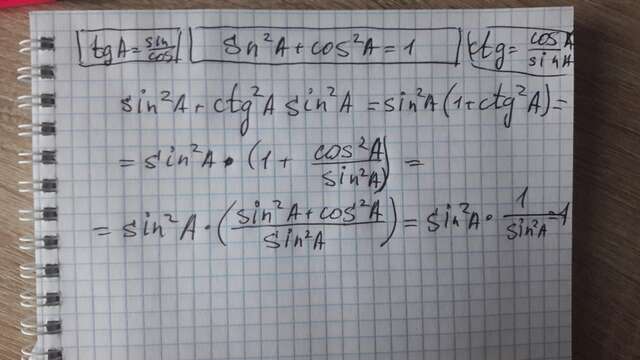 tgA = sin/cos   Sn²A + cos²A = 1   ctg = cosA/sinA
sin²A + ctg²A sin²A = sin²A (1 + ctg²A) =
= sin²A · (1 + cos²A/sin²A) =
= sin²A · (sin²A + cos²A/sin²A) = sin²A · 1/sin²A = 1